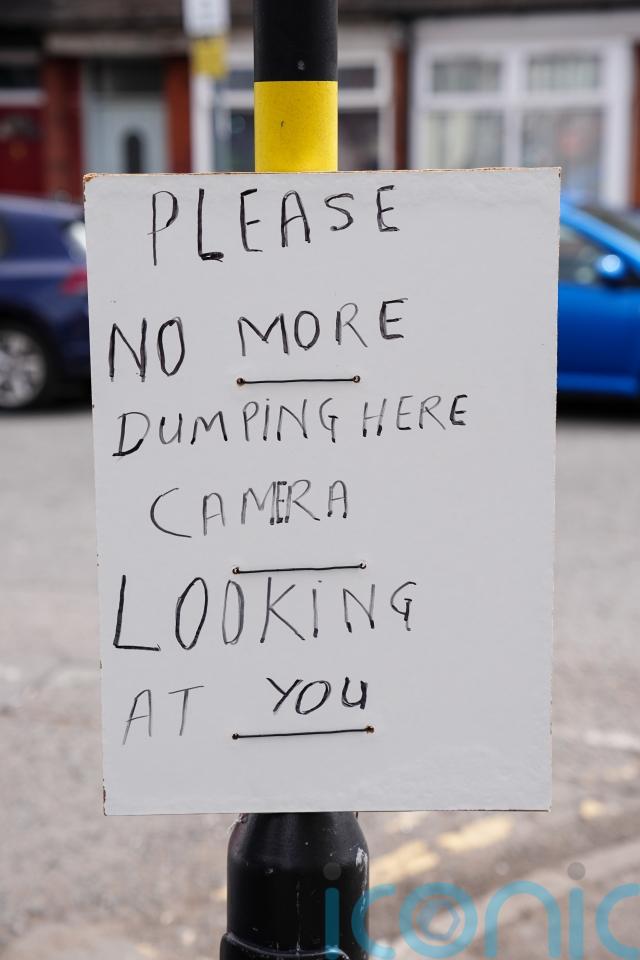 PLEASE
NO MORE
DUMPiNG HERE
CAMERA
LOOKiNG
AT YOU
iconic